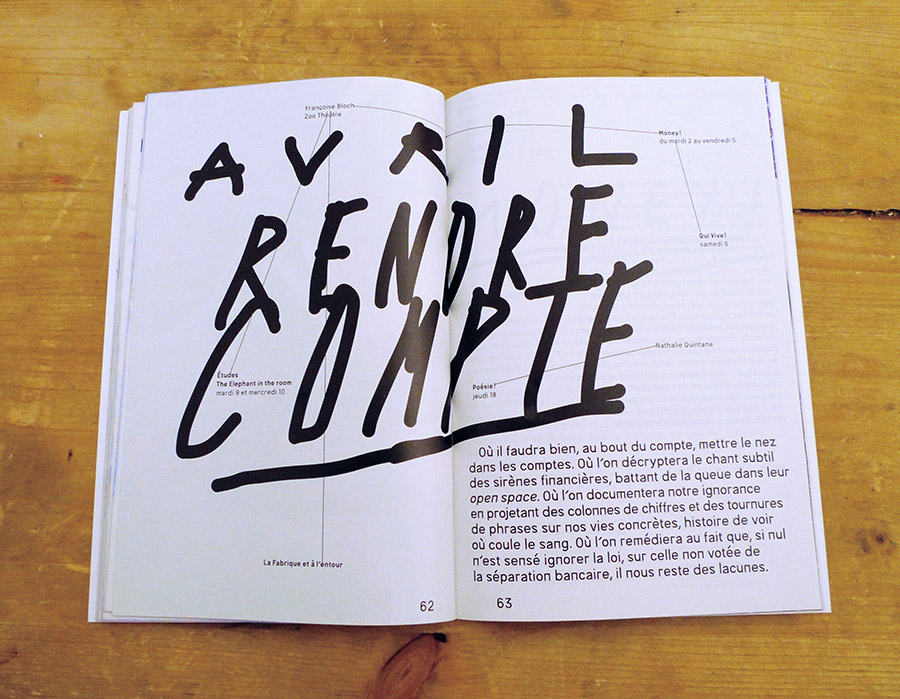 Françoise Bloch
Zoo Théâtre
AVRIL
RENDRE
COMPTE
Money!
du mardi 2 au vendredi 5
Qui Vive!
samedi 6
Études
The Elephant in the room
mardi 9 et mercredi 10
Nathalie Quintane
Poésie!
jeudi 18
La Fabrique et à l'éntour
Où il faudra bien, au bout du compte, mettre le nez
dans les comptes. Où l'on décryptera le chant subtil
des sirènes financières, battant de la queue dans leur
open space. Où l'on documentera notre ignorance
en projetant des colonnes de chiffres et des tournures
de phrases sur nos vies concrètes, histoire de voir
où coule le sang. Où l'on remédiera au fait que, si nul
n'est sensé ignorer la loi, sur celle non votée de
la séparation bancaire, il nous reste des lacunes.
62
63